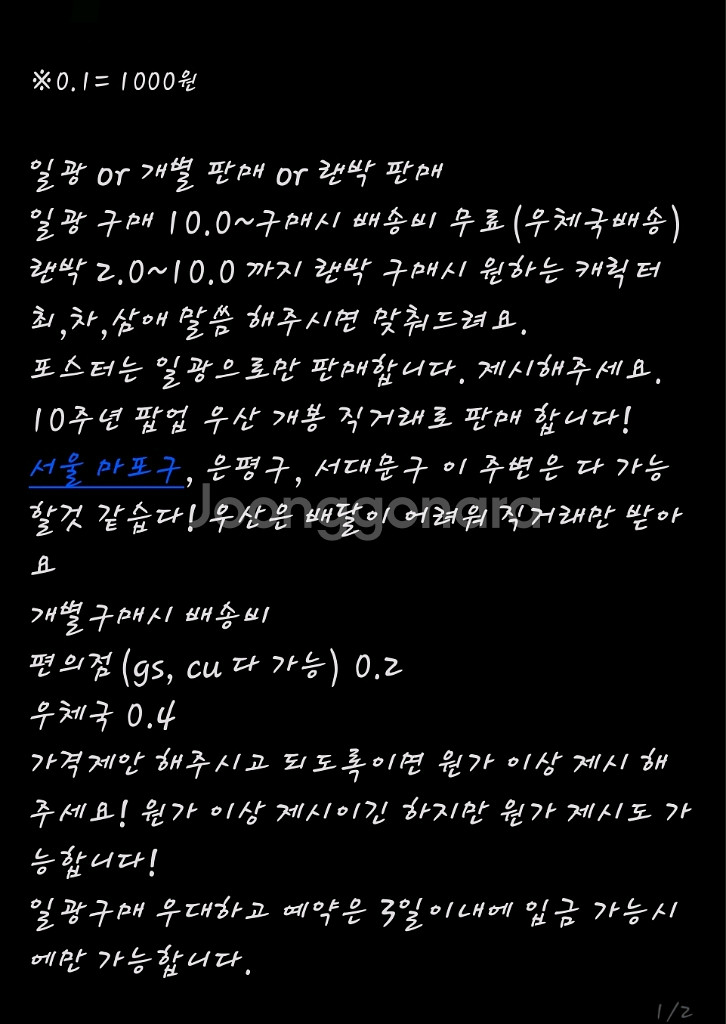 ※0.1= 1000원
일괄 or 개별 판매 or 랜박 판매
일괄 구매 10.0~구매시 배송비 무료(우체국배송)
랜박 2.0~10.0 까지 랜박 구매시 원하는 캐릭터
최,차,삼애 말씀 해주시면 맞춰드려요.
포스터는 일괄으로만 판매합니다. 제시해주세요.
10주년 팝업 우산 개봉 직거래로 판매 합니다!
서울 마포구, 은평구, 서대문구 이 주변은 다 가능
할것 같습다! 우산은 배달이 어려워 직거래만 받아
요
Joonggonara
개별구매시 배송비
편의점(gs, cu 다 가능) 0.2
우체국 0.4
가격제안 해주시고 되도록이면 원가 이상 제시 해
주세요! 원가 이상 제시이긴 하지만 원가 제시도 가
능합니다!
일괄구매 우대하고 예약은 3일이내에 입금 가능시
에만 가능합니다.
1/2